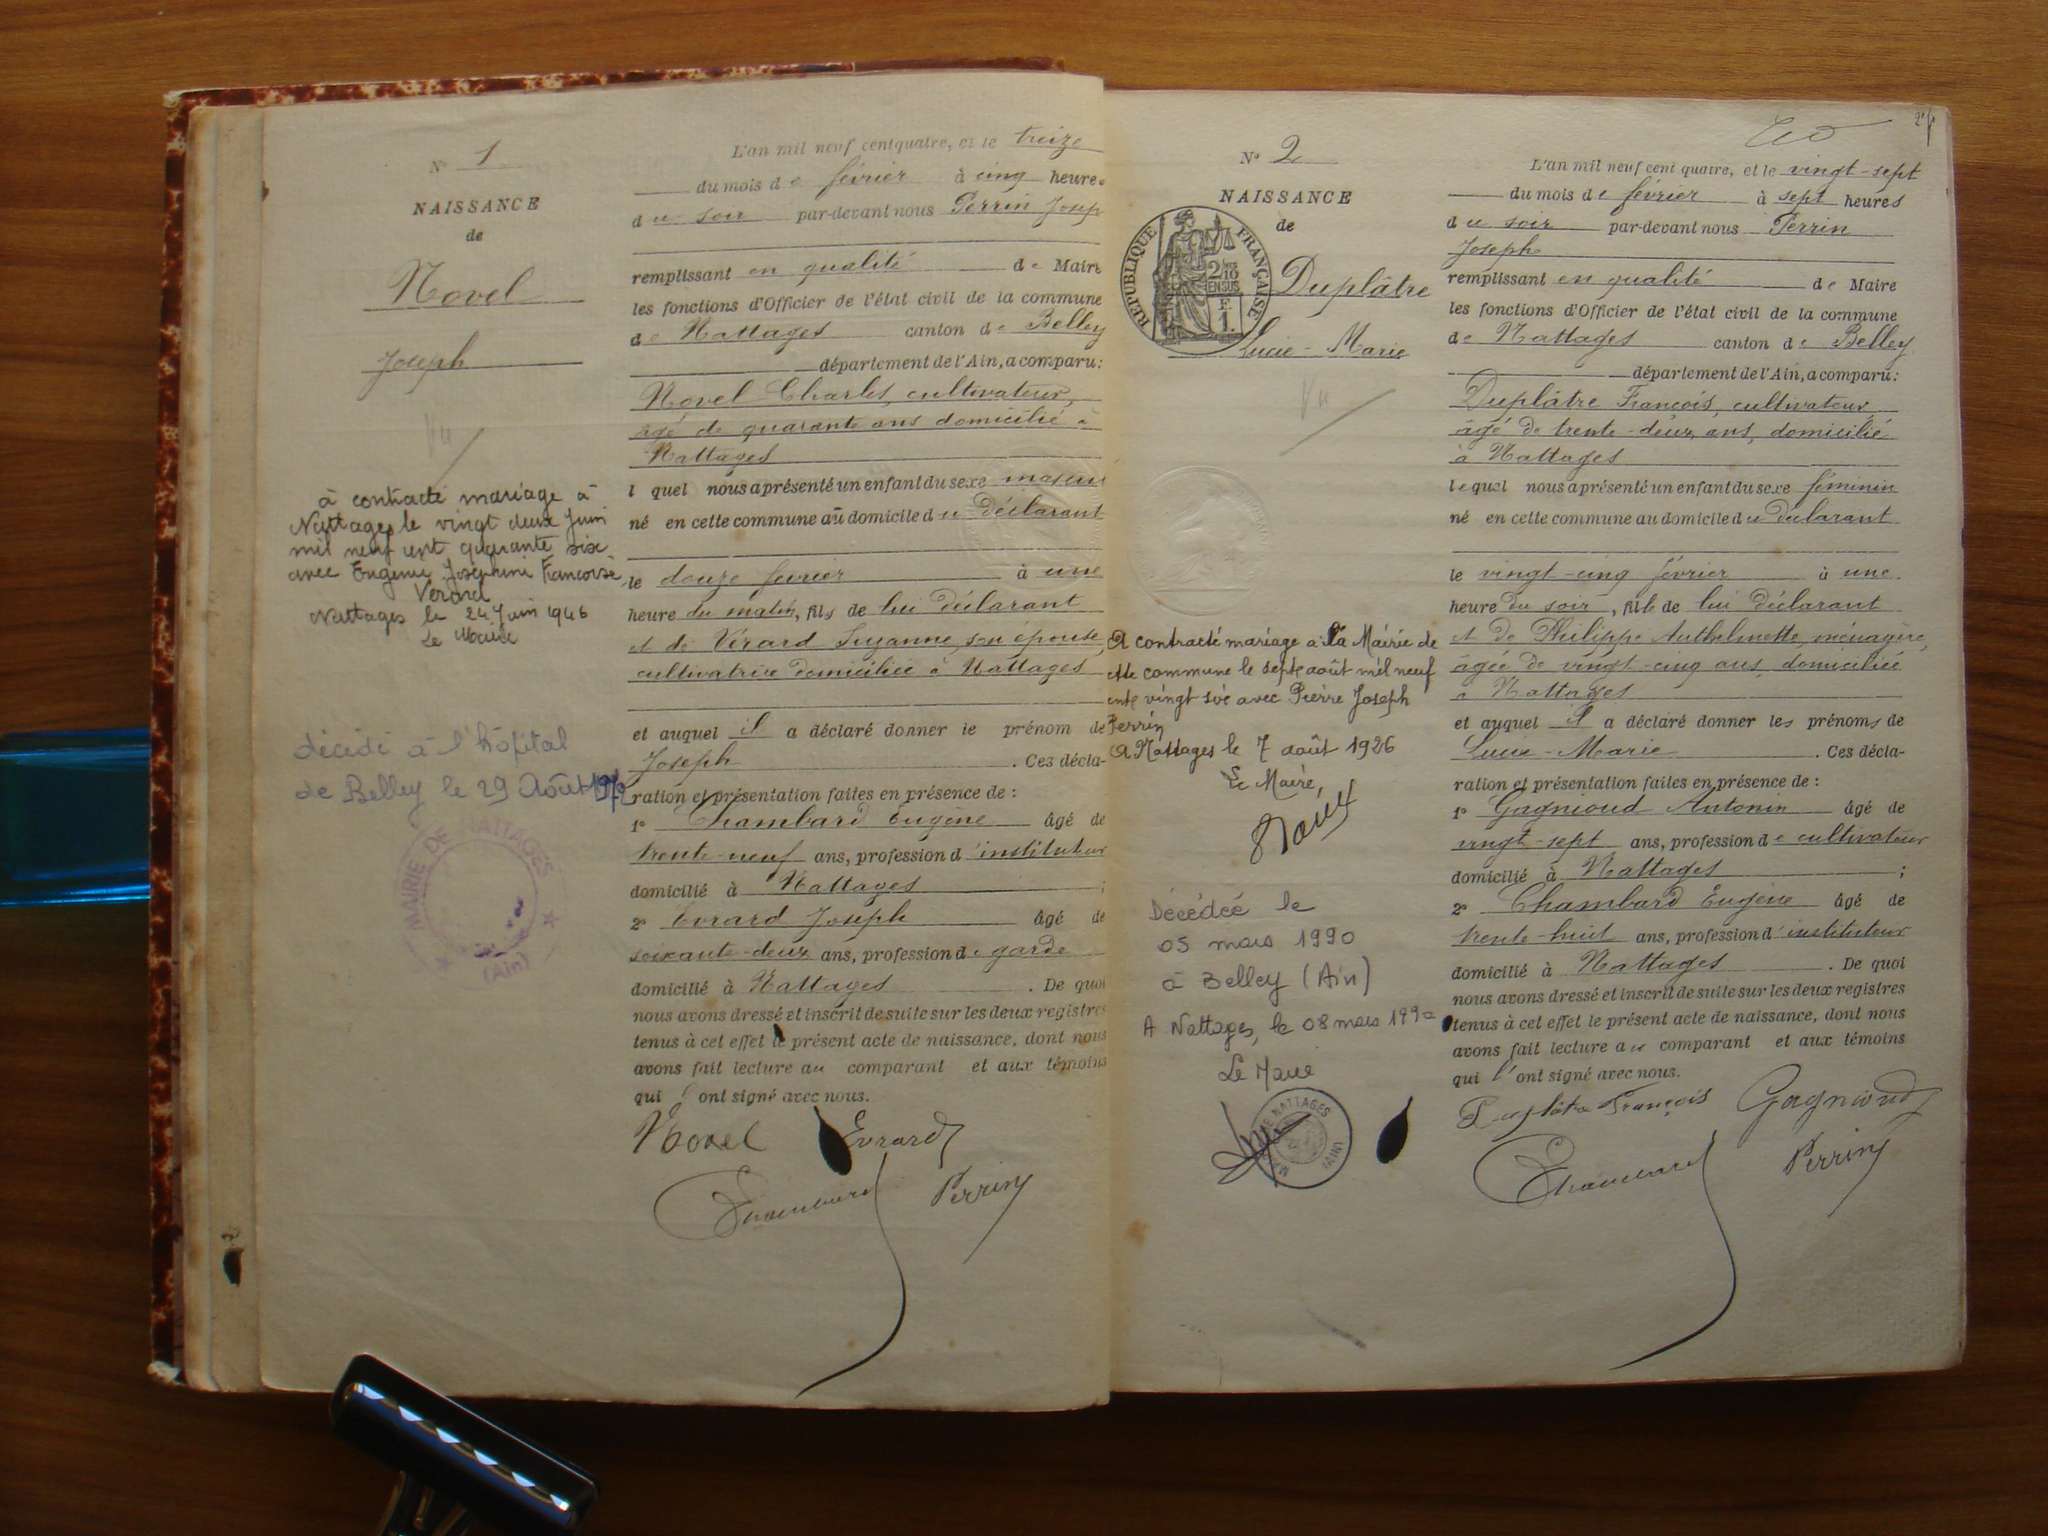 N° 1
NAISSANCE
de
Novel
Joseph
Vu
à contracté mariage à
Nattages le vingt deux Juin
mil neuf cent quarante six
avec Eugénie Joséphine Françoise
Vérard
Nattages le 24 Juin 1946
Le Maire
décédé à l'hôpital
de Belley le 29 Août
MAIRIE DE NATTAGES
(Ain)
L'an mil neuf cent quatre, et le treize
du mois de février à cinq heures
du soir par-devant nous Perrin Josep
remplissant en qualité de Maire
les fonctions d'Officier de l'état civil de la commune
de Nattages canton de Belley
département de l'Ain, a comparu:
Novel Charles, cultivateur,
âgé de quarante ans domicilié à
Nattages
l quel nous a présenté un enfant du sexe mascul
né en cette commune au domicile du Déclarant
le douze février à une
heure du matin, fils de lui Déclarant
et de Vérard Suzanne, son épouse,
cultivatrice domiciliée à Nattages
et auquel il a déclaré donner le prénom de
Joseph. Ces décla-
ration et présentation faites en présence de :
1° Chambard Eugène âgé de
trente-neuf ans, profession d'instituteur
domicilié à Nattages ;
2° Evrard Joseph âgé de
soixante-deux ans, profession de garde
domicilié à Nattages. De quoi
nous avons dressé et inscrit de suite sur les deux registres
tenus à cet effet le présent acte de naissance, dont nous
avons fait lecture au comparant et aux témoins
qui l'ont signé avec nous.
Novel Evrard
Chambard Perrin
N° 2
NAISSANCE
de
REPUBLIQUE FRANÇAISE
2/10
EN SUS
F.
1.
Duplâtre
Lucie-Marie
Vu
A contracté mariage à la Mairie de
cette commune le sept août mil neuf
cent vingt six avec Pierre Joseph
Perrin
A Nattages le 7 août 1926
Le Maire,
Décédée le
05 mars 1990
à Belley (Ain)
A Nattages, le 08 mars 1990
Le Maire
MAIRIE DE NATTAGES
(AIN)
L'an mil neuf cent quatre, et le vingt-sept
du mois de février à sept heures
du soir par-devant nous Perrin
Joseph
remplissant en qualité de Maire
les fonctions d'Officier de l'état civil de la commune
de Nattages canton de Belley
département de l'Ain, a comparu:
Duplâtre François, cultivateur
âgé de trente-deux ans, domicilié
à Nattages
lequel nous a présenté un enfant du sexe féminin
né en cette commune au domicile du Déclarant
le vingt-cinq février à une
heure du soir, fille de lui Déclarant
et de Philippe Anthelmette, ménagère,
âgée de vingt-cinq ans, domiciliée
à Nattages
et auquel il a déclaré donner les prénoms de
Lucie-Marie. Ces décla-
ration et présentation faites en présence de :
1° Gagnioud Antonin âgé de
vingt-sept ans, profession de cultivateur
domicilié à Nattages ;
2° Chambard Eugène âgé de
trente-huit ans, profession d'instituteur
domicilié à Nattages. De quoi
nous avons dressé et inscrit de suite sur les deux registres
tenus à cet effet le présent acte de naissance, dont nous
avons fait lecture au comparant et aux témoins
qui l'ont signé avec nous.
Duplâtre François Gagnioud
Chambard Perrin